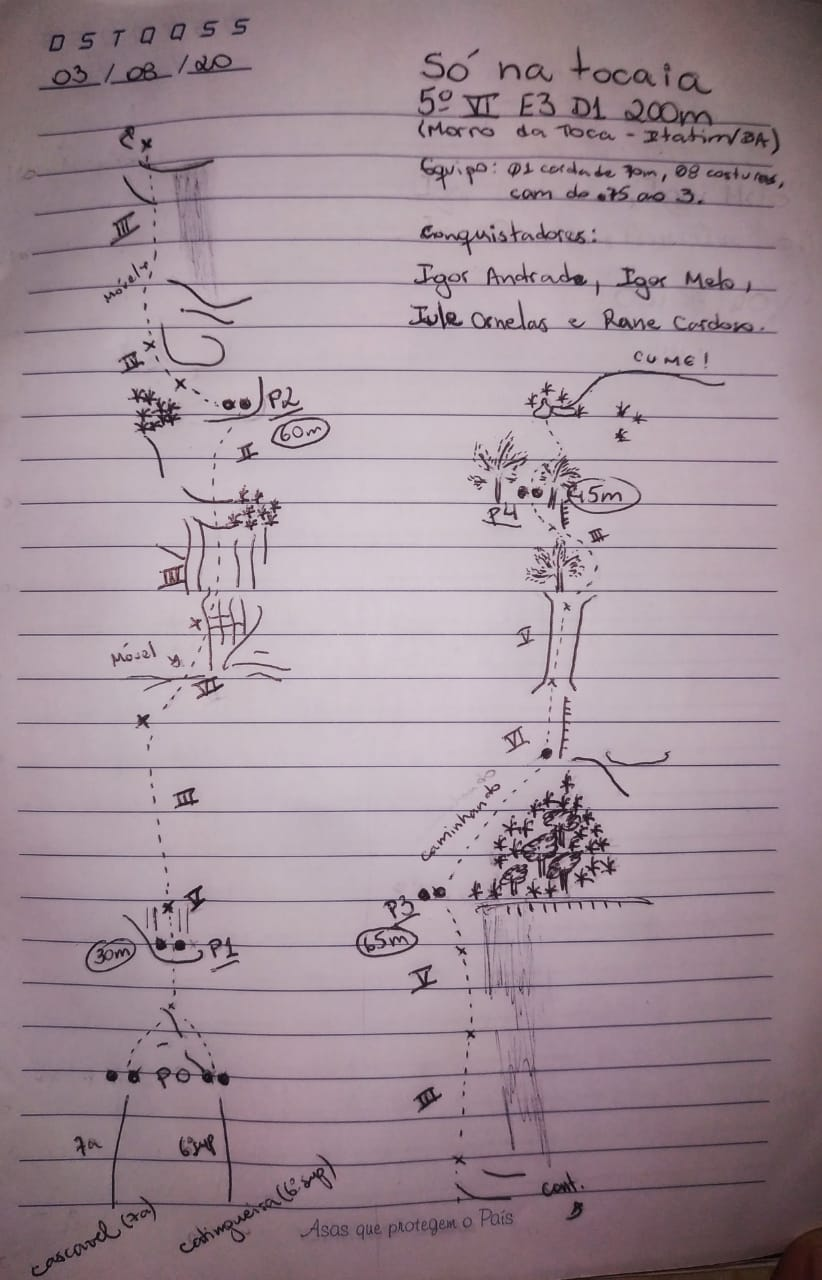 DSTQQSS
03 / 08 / 20
Só na tocaia
5º VI E3 D1 200m
(Morro da Toca - Itatim/BA)
Equipo: 01 corda de 70m, 08 costuras,
cam do .75 ao 3.
Conquistadores:
Igor Andrade, Igor Melo,
Iule Ornelas e Rane Cardoso.
III
Móvel
IV
P2
60m
II
IV
Móvel
VI
III
V
30m
P1
P0
7a
6ºsup
cascavel (7a)
catingueira (6º sup)
CUME!
P4
45m
III
V
VI
caminhando
P3
65m
V
III
cont.
Asas que protegem o País